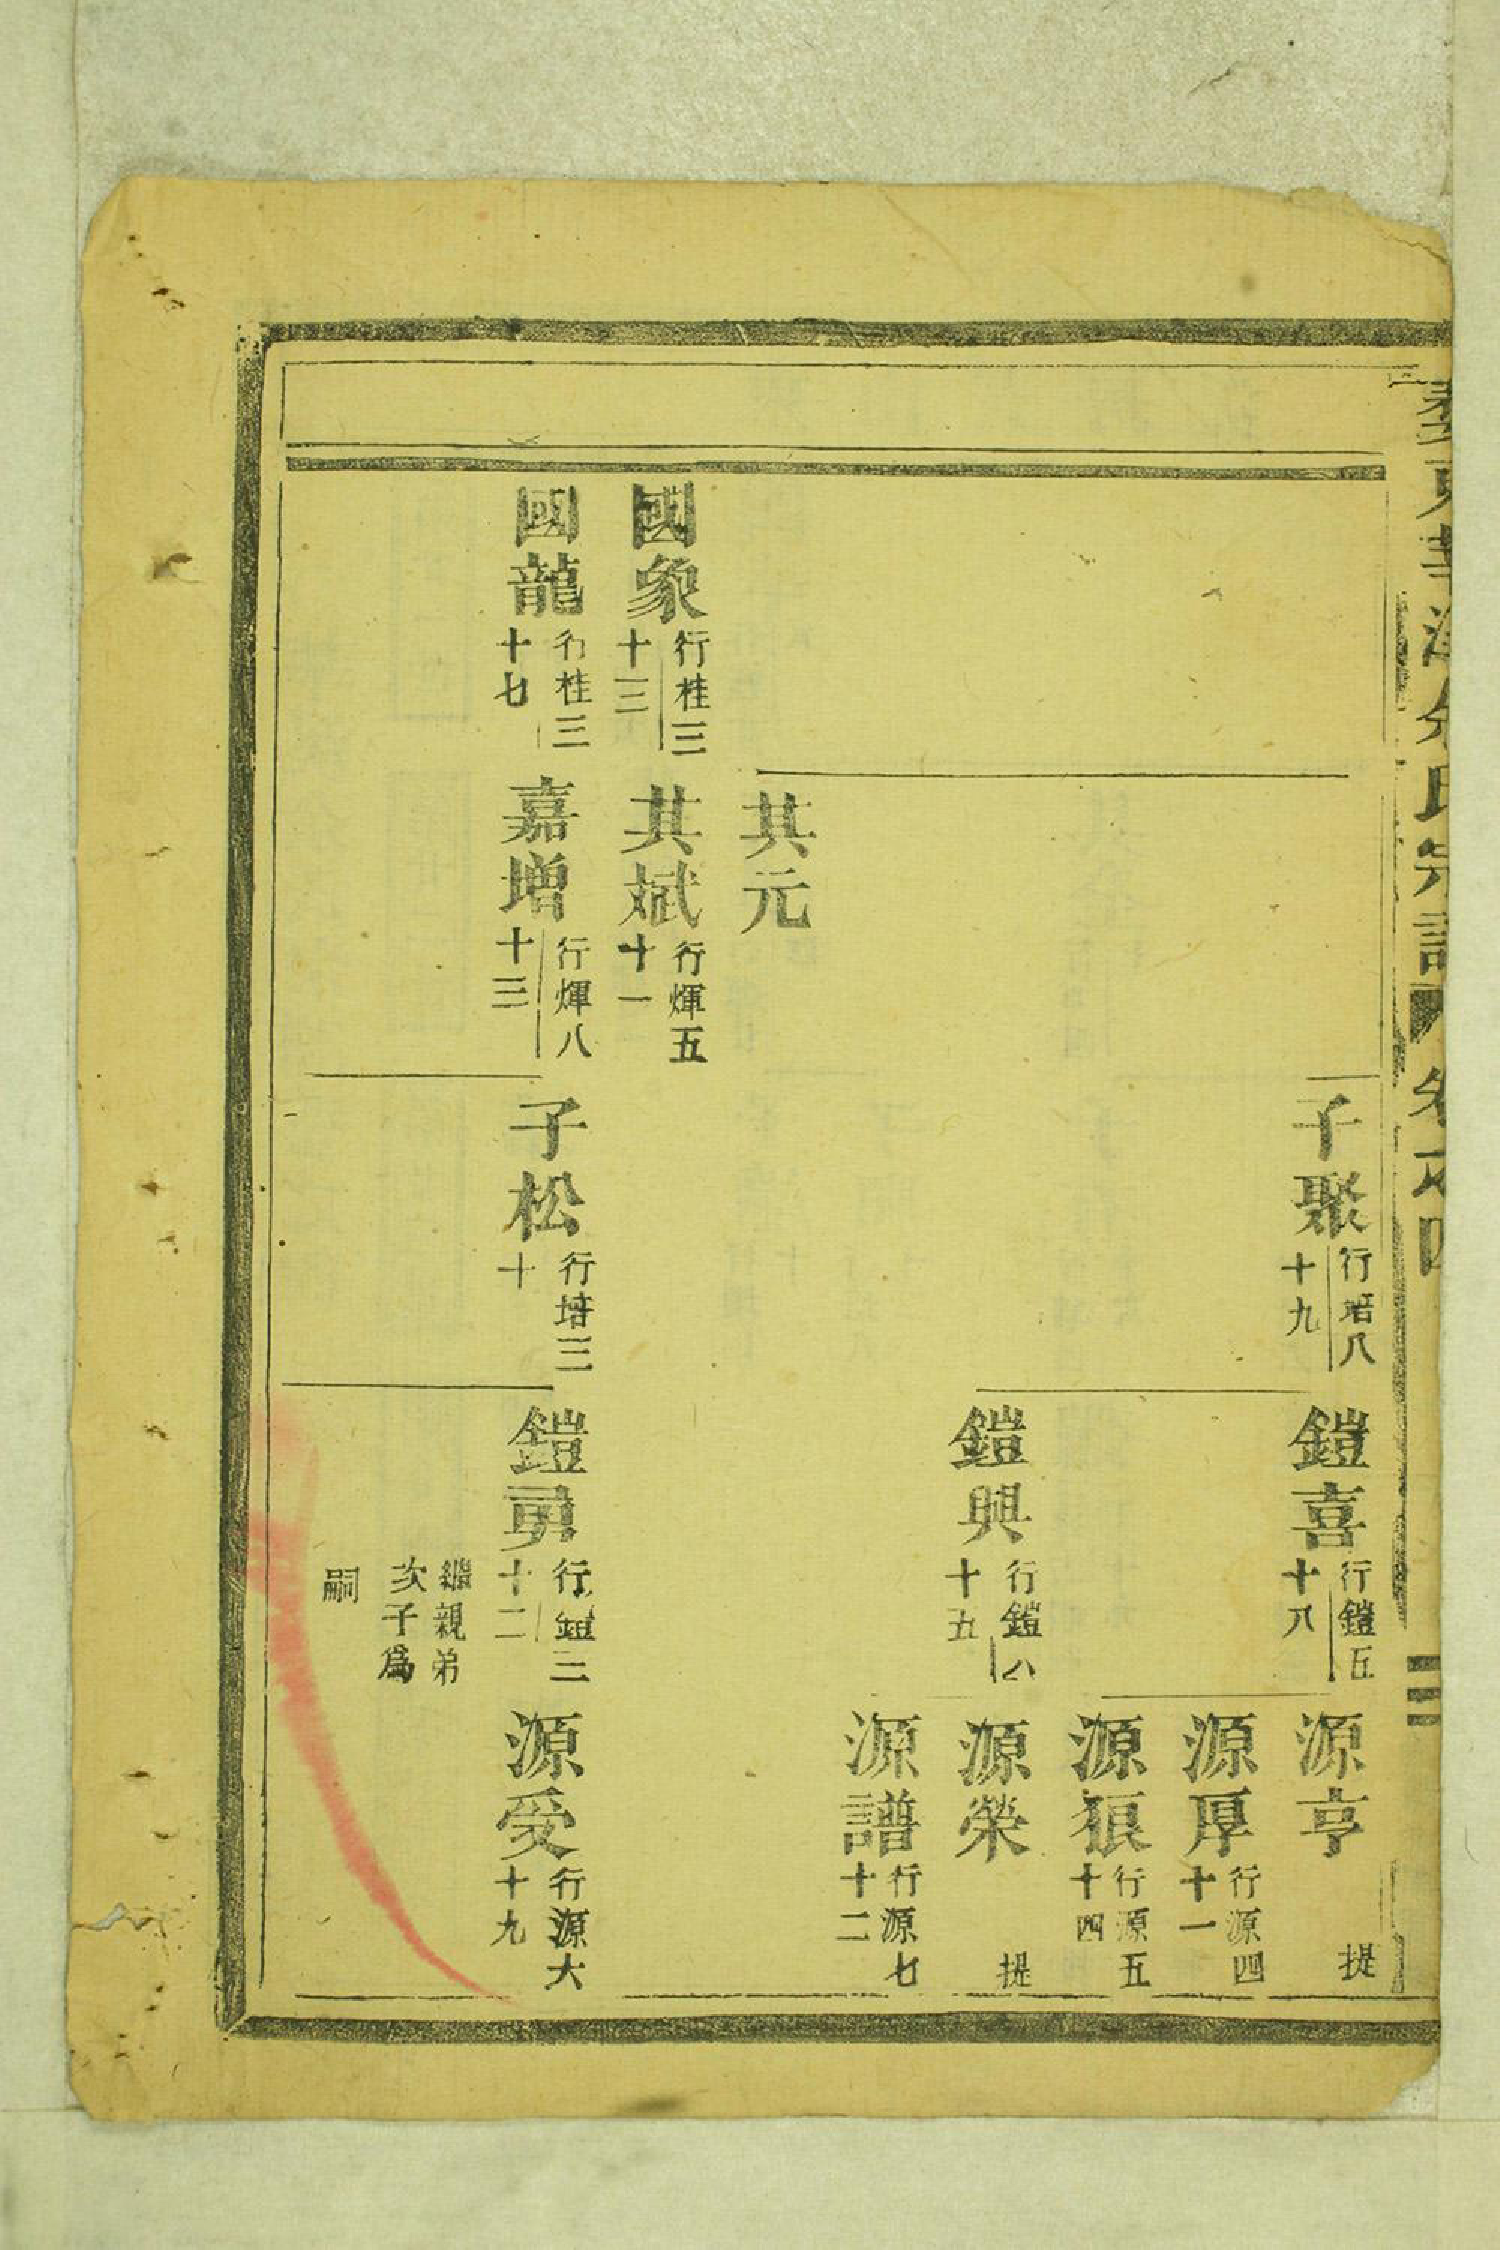 氏宗譜 卷之四
子聚 行培八十九
鎧喜 行鎧五十八
源亨 提
源厚 行源四十一
源狠 行源五十四
鎧興 行鎧八十五
源榮 提
源譜 行源七十二
其元
國象 行桂三十三
其斌 行煇五十一
國龍 行桂三十七
嘉增 行煇八十三
子松 行培三十
鎧勇 行鎧三十二
繼親弟
次子為
嗣
源受 行源六十九